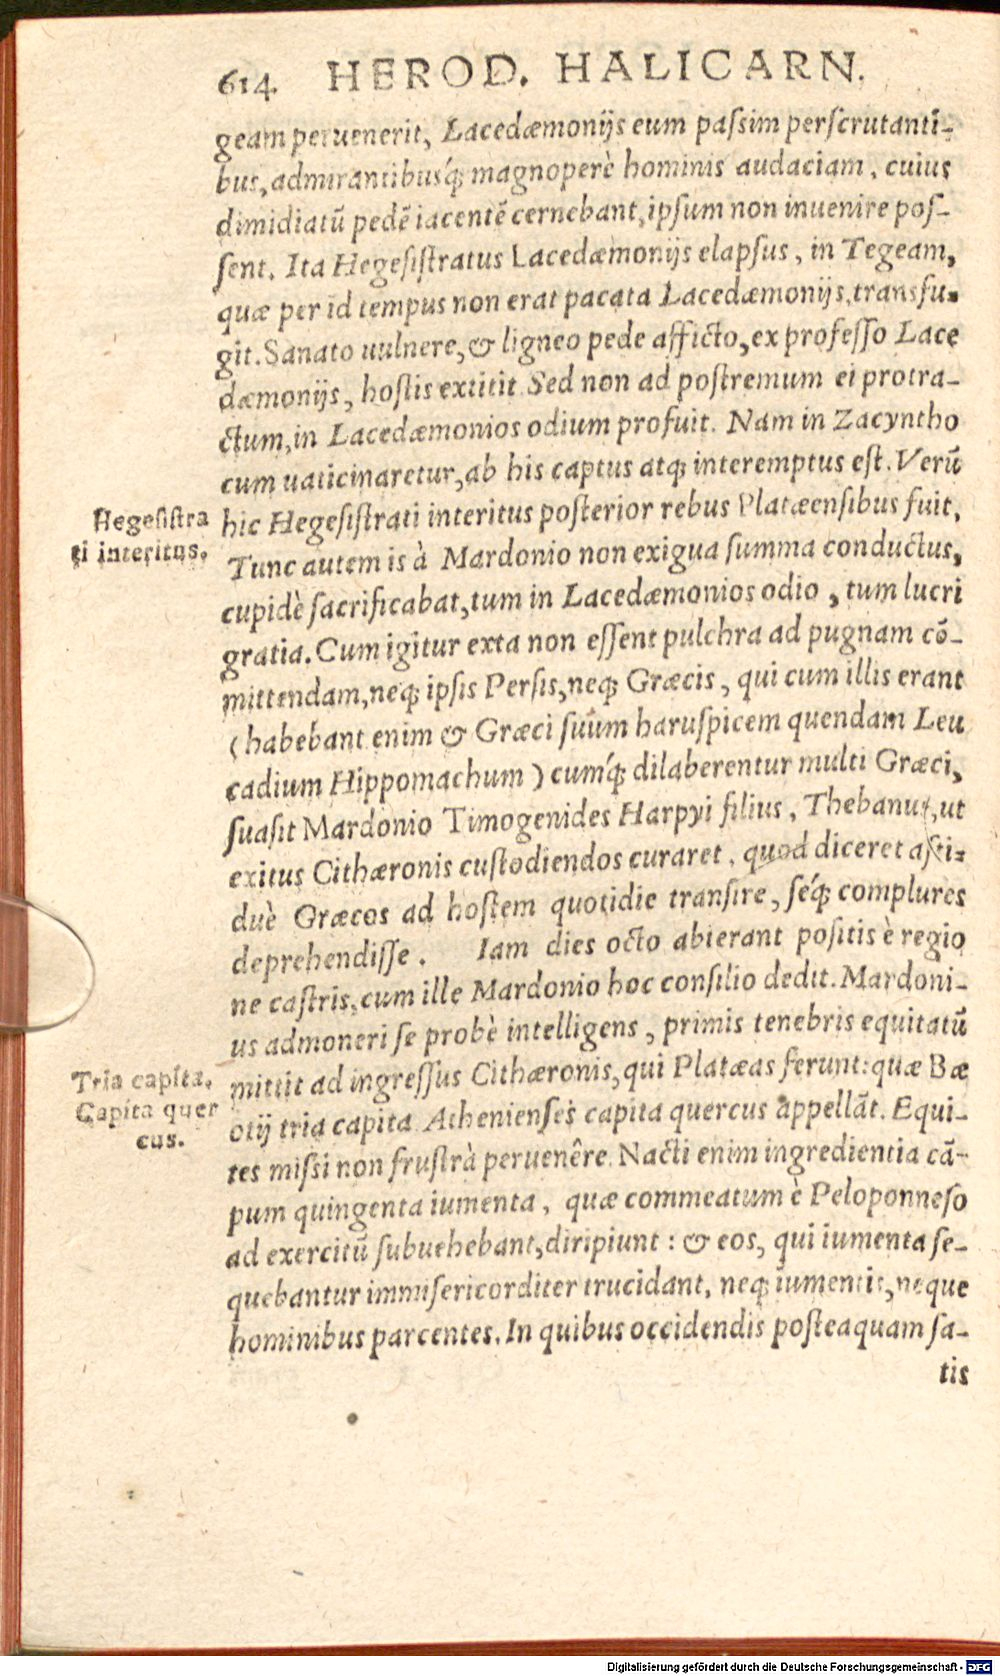 614. HEROD. HALICARN.
geam peruenerit, Lacedæmonijs eum paſsim perſcrutanti-
bus, admirantibusq́; magnoperè hominis audaciam, cuius
dimidiatū pedē iacentē cernebant, ipſum non inuenire poſ-
ſent. Ita Hegeſiſtratus Lacedæmonijs elapſus, in Tegeam,
quæ per id tempus non erat pacata Lacedæmonijs, transfu-
git. Sanato uulnere, & ligneo pede afficto, ex profeſſo Lace
dæmonijs, hoſtis extitit. Sed non ad poſtremum ei protra-
ctum, in Lacedæmonios odium profuit. Nam in Zacyntho
cum uaticinaretur, ab his captus atq; interemptus eſt. Verū
Hegeſiſtra
ti interitus.
hic Hegeſiſtrati interitus poſterior rebus Platæenſibus fuit.
Tunc autem is à Mardonio non exigua ſumma conductus,
cupidè ſacrificabat, tum in Lacedæmonios odio, tum lucri
gratia. Cum igitur exta non eſſent pulchra ad pugnam cō-
mittendam, neq; ipſis Perſis, neq; Græcis, qui cum illis erant
(habebant enim & Græci ſuum haruſpicem quendam Leu
cadium Hippomachum) cumq́; dilaberentur multi Græci,
ſuaſit Mardonio Timogenides Harpyi filius, Thebanus, ut
exitus Cithæronis cuſtodiendos curaret, quod diceret aſsi-
duè Græcos ad hoſtem quotidie tranſire, ſeq́; complures
deprehendiſſe. Iam dies octo abierant poſitis è regio
ne caſtris, cum ille Mardonio hoc conſilio dedit. Mardoni-
us admoneri ſe probè intelligens, primis tenebris equitatū
Tria capita.
Capita quer
cus.
mittit ad ingreſſus Cithæronis, qui Platæas ferunt: quæ Bœ
otij tria capita Athenienſes capita quercus appellāt. Equi-
tes miſsi non fruſtrà peruenêre. Nacti enim ingredientia cā-
pum quingenta iumenta, quæ commeatum è Peloponneſo
ad exercitū ſubuehebant, diripiunt: & eos, qui iumenta ſe-
quebantur immiſericorditer trucidant, neq; iumentis, neque
hominibus parcentes. In quibus occidendis poſteaquam ſa-
tis
Digitalisierung gefördert durch die Deutsche Forschungsgemeinschaft - DFG